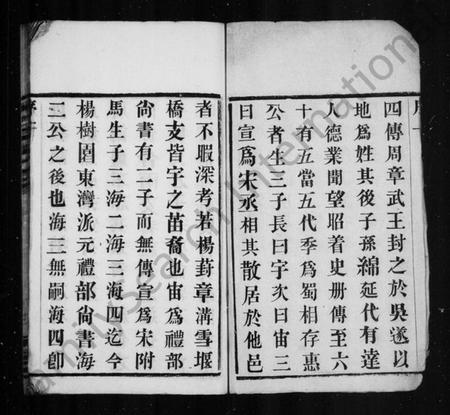 四傳周章武王封之於吳遂以
地爲姓其後子孫綿延代有達
人德業聞望昭着史册傳至六
十有五當五代季爲蜀相存惠
公者生三子長曰宇次曰宙三
曰宣爲宋丞相其散居於他邑
者不暇深考若楊葑章溝雪堰
橋支皆宇之苗裔也宙爲禮部
尚書有二子而無傳宣爲宋附
馬生子三海二海三海四迄今
楊樹園東灣派元禮部尚書海
三公之後也海三無嗣海四卽